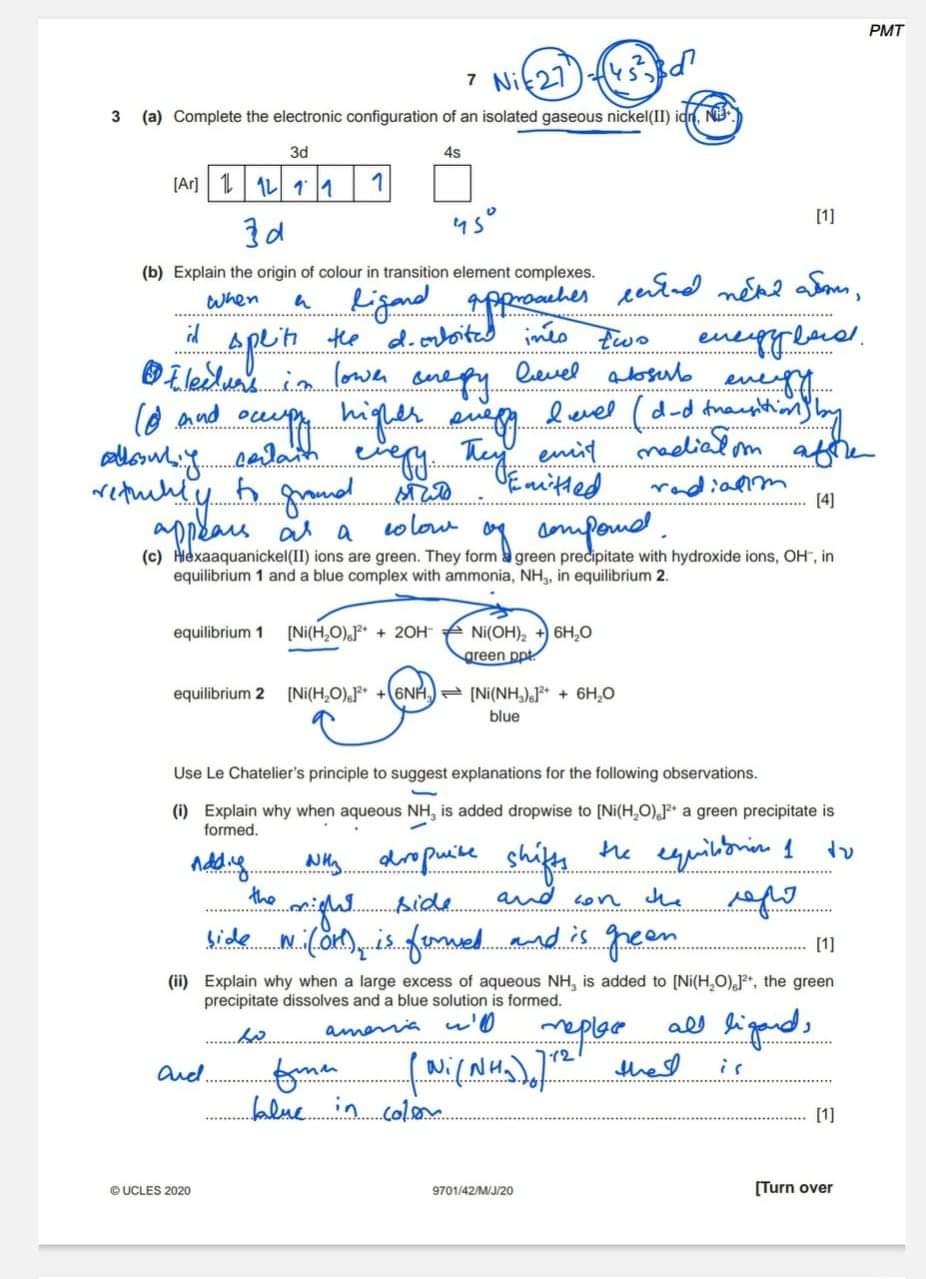 PMT
7 Ni=27 = 4s², 3d⁷
3 (a) Complete the electronic configuration of an isolated gaseous nickel(II) ion, Ni²⁺.
3d 4s
[Ar] 1L 1L 1 1 1
3d 4s⁰
[1]
(b) Explain the origin of colour in transition element complexes.
when a ligand approaches central metal atom,
it split the d.orbital into two energy level.
Electrons in lower energy level absorb energy
and occupy higher energy level (d-d transition) by
certain energy. They emit radiation after
to ground . Emitted radiation [4]
appears as a colour of compound.
(c) Hexaaquanickel(II) ions are green. They form a green precipitate with hydroxide ions, OH⁻, in
equilibrium 1 and a blue complex with ammonia, NH₃, in equilibrium 2.
equilibrium 1 [Ni(H₂O)₆]²⁺ + 2OH⁻ ⇌ Ni(OH)₂ + 6H₂O
green ppt.
equilibrium 2 [Ni(H₂O)₆]²⁺ + 6NH₃ ⇌ [Ni(NH₃)₆]²⁺ + 6H₂O
blue
Use Le Chatelier's principle to suggest explanations for the following observations.
(i) Explain why when aqueous NH₃ is added dropwise to [Ni(H₂O)₆]²⁺ a green precipitate is
formed.
Adding NH₃ dropwise shifts the equilibrium 1 to
the right side and the
side Ni(OH)₂ is formed and is green [1]
(ii) Explain why when a large excess of aqueous NH₃ is added to [Ni(H₂O)₆]²⁺, the green
precipitate dissolves and a blue solution is formed.
so replace all ligands
and form [Ni(NH₃)₆]⁺² that is
blue in color [1]
© UCLES 2020 9701/42/M/J/20 [Turn over